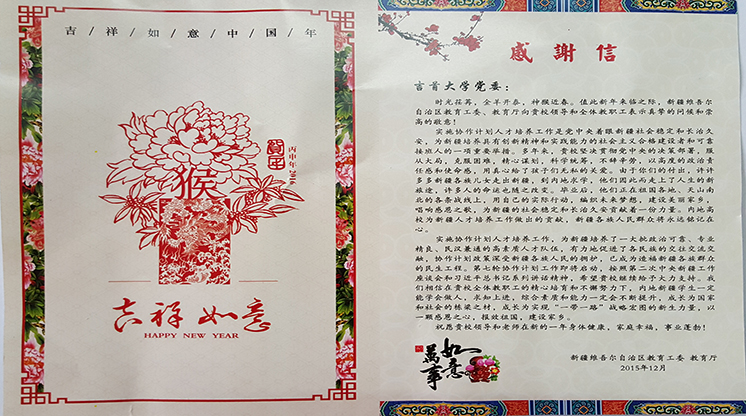 吉/祥/如/意/中/国/年
賀年
丙申年2016
猴
吉祥如意
HAPPY NEW YEAR
感謝信
吉首大学党委：
时光荏苒，金羊开泰，神猴近春。值此新年来临之际，新疆维吾尔
自治区教育工委、教育厅向贵校领导和全体教职工表示真挚的问候和崇
高的敬意！
实施协作计划人才培养工作是党中央着眼新疆社会稳定和长治久
安，为新疆培养具有创新精神和实践能力的社会主义合格建设者和可靠
接班人的一项重要举措。多年来，贵校坚决贯彻党中央的决策部署，服
从大局，克服困难，精心谋划，科学统筹，不辞辛劳，以高度的政治责
任感和使命感，用真心给了孩子们无私的关爱。由于你们的付出，许许
多多新疆各族儿女走出新疆，到内地求学，他们因此而走上了人生的新
旅途，许多人的命运也随之改变。毕业后，他们正在祖国各地、天山南
北的各条战线上，用自己的实际行动，编织未来梦想，建设美丽家乡，
唱响感恩之歌，为新疆的社会稳定和长治久安贡献着一份力量。内地高
校为新疆人才培养工作做出的贡献，新疆各族人民群众将永远铭记在
心。
实施协作计划人才培养工作，为新疆培养了一大批政治可靠、专业
精良、民汉兼通的高素质人才队伍，有力地促进了各民族的交往交流交
融，协作计划政策深受新疆各族人民的拥护，已成为造福新疆各族群众
的民生工程。第七轮协作计划工作即将启动，按照第二次中央新疆工作
座谈会和习近平总书记系列讲话精神，希望贵校继续给予大力支持。我
们相信在贵校全体教职工的精心培育和不懈努力下，内地新疆学生一定
能学会做人，求知上进，综合素质和能力一定会不断提升，成长为国家
和社会的栋梁之材，成长为实现“一带一路”战略宏图的新生力量，以
一颗感恩之心，报效祖国，建设家乡。
祝愿贵校领导和老师在新的一年身体健康，家庭幸福，事业蓬勃！
如意
萬事
新疆维吾尔自治区教育工委 教育厅
2015年12月